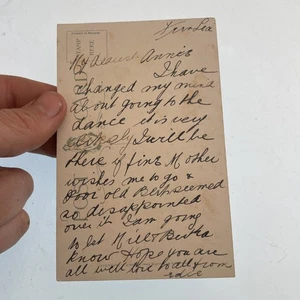 My dearest Annie
I have
changed my mind
about going to the
dance it is very
likely I will be
there if fine Mother
wishes me to go &
Poor old Bert seemed
so disappointed
over it I am going
to let Will & Bertha
know Hope you are
all well love to all from